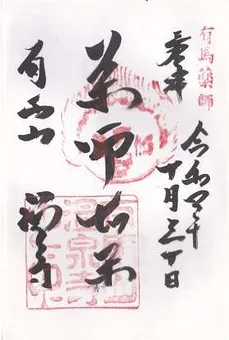 有馬薬師
奉拝
令和四年
十月三十日
薬師如来
有馬山
温泉寺